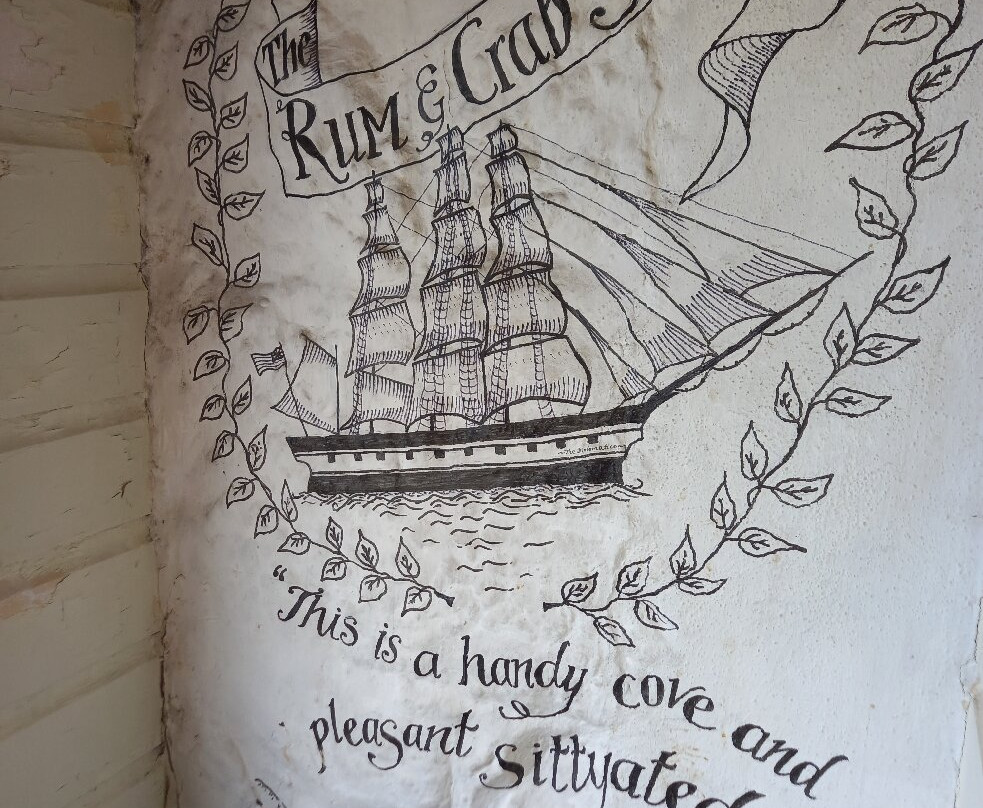 The
Rum & Crab
"This is a handy cove and
pleasant sittyated